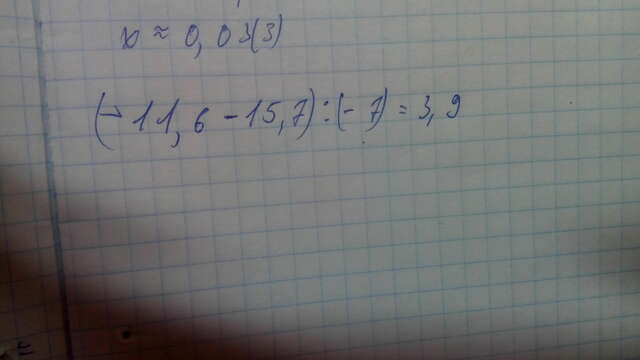 x ≈ 0,03(3)
(-11,6 - 15,7) : (-7) = 3,9